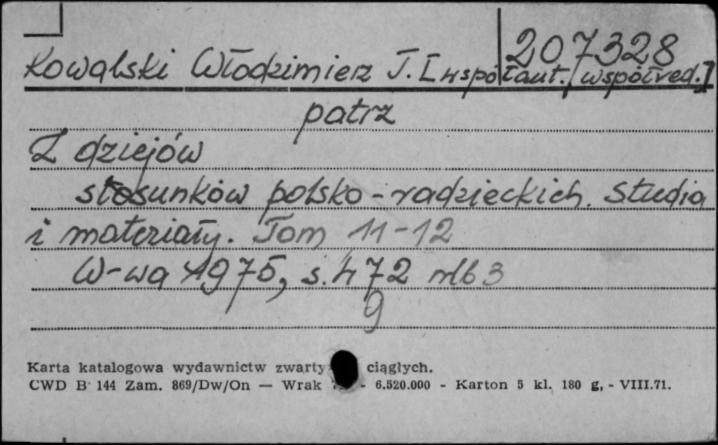 207328
Kowalski Włodzimierz J. [współaut., współred.]
patrz
Z dziejów
stosunków polsko-radzieckich. Studia
i materiały. Tom 11-12
W-wa 1975, s. 472 nlb 3
9
Karta katalogowa wydawnictw zwarty ciągłych.
CWD B 144 Zam. 869/Dw/On — Wrak - 6.520.000 - Karton 5 kl. 180 g, - VIII.71.